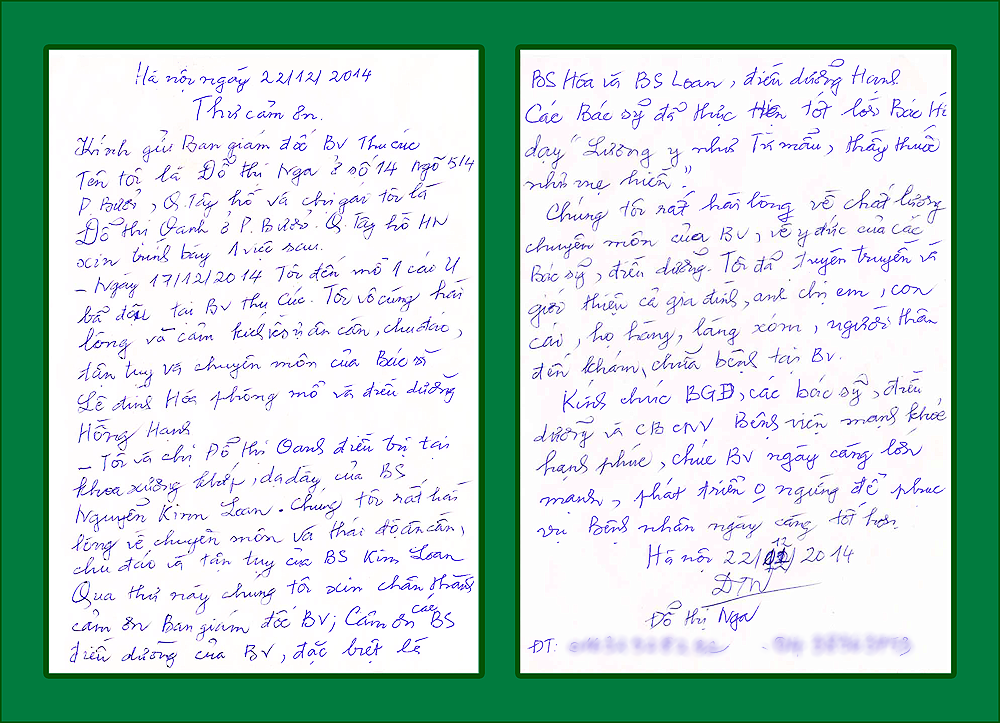 Hà nội ngày 22/12/2014
Thư cảm ơn.
Kính gửi Ban giám đốc BV Thu cúc
Tên tôi là Đỗ thị Nga ở số 14 Ngõ 514
P. Bưởi, Q. Tây hồ và chị gái tôi là
Đỗ thị Oanh ở P. Bưởi. Q. Tây hồ HN
xin trình bày 1 việc sau.
- Ngày 17/12/2014 Tôi đến mổ 1 cái U
bã đậu tại BV Thu Cúc. Tôi vô cùng hài
lòng và cảm kích ân cần, chu đáo,
tận tụy và chuyên môn của Bác sĩ
Lê đình Hóa phòng mổ và điều dưỡng
Hồng Hanh
- Tôi và chị Đỗ thị Oanh điều trị tại
khoa xương khớp, dạ dầy của BS
Nguyễn Kim Loan. Chúng tôi rất hài
lòng về chuyên môn và thái độ ân cần,
chu đáo và tận tụy của BS Kim Loan
Qua thư này chúng tôi xin chân thành
cảm ơn Ban giám đốc BV; Cảm ơn các BS
điều dưỡng của BV, đặc biệt là
BS Hóa và BS Loan, điều dưỡng Hanh.
Các Bác sỹ đã thực hiện tốt lời Bác Hồ
dạy "Lương y như Từ mẫu, thầy thuốc
như mẹ hiền."
Chúng tôi rất hài lòng về chất lượng
chuyên môn của BV, về y đức của các
Bác sỹ, điều dưỡng. Tôi đã truyên truyền và
giới thiệu cả gia đình, anh chị em, con
cái, họ hàng, làng xóm, người thân
đến khám, chữa bệnh tại BV.
Kính chúc BGĐ, các bác sỹ, điều
dưỡng và CBCNV Bệnh viện mạnh khỏe
hạnh phúc, chúc BV ngày càng lớn
mạnh, phát triển 0 ngừng để phục
vụ Bệnh nhân ngày càng tốt hơn.
Hà nội 22/12/2014
ĐTN
Đỗ thị Nga
ĐT: